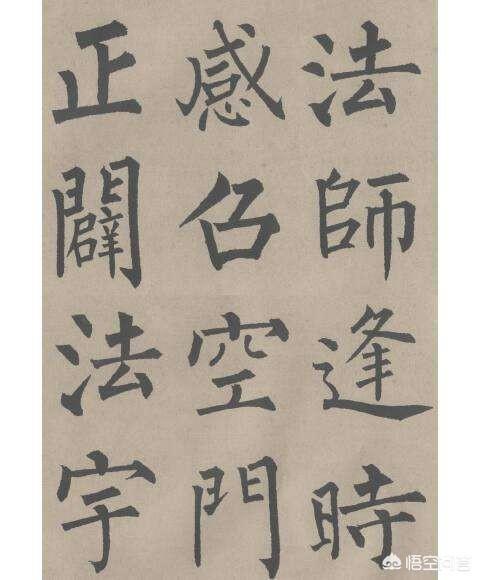 法師逢時
感召空門
正闢法宇
悟空问答